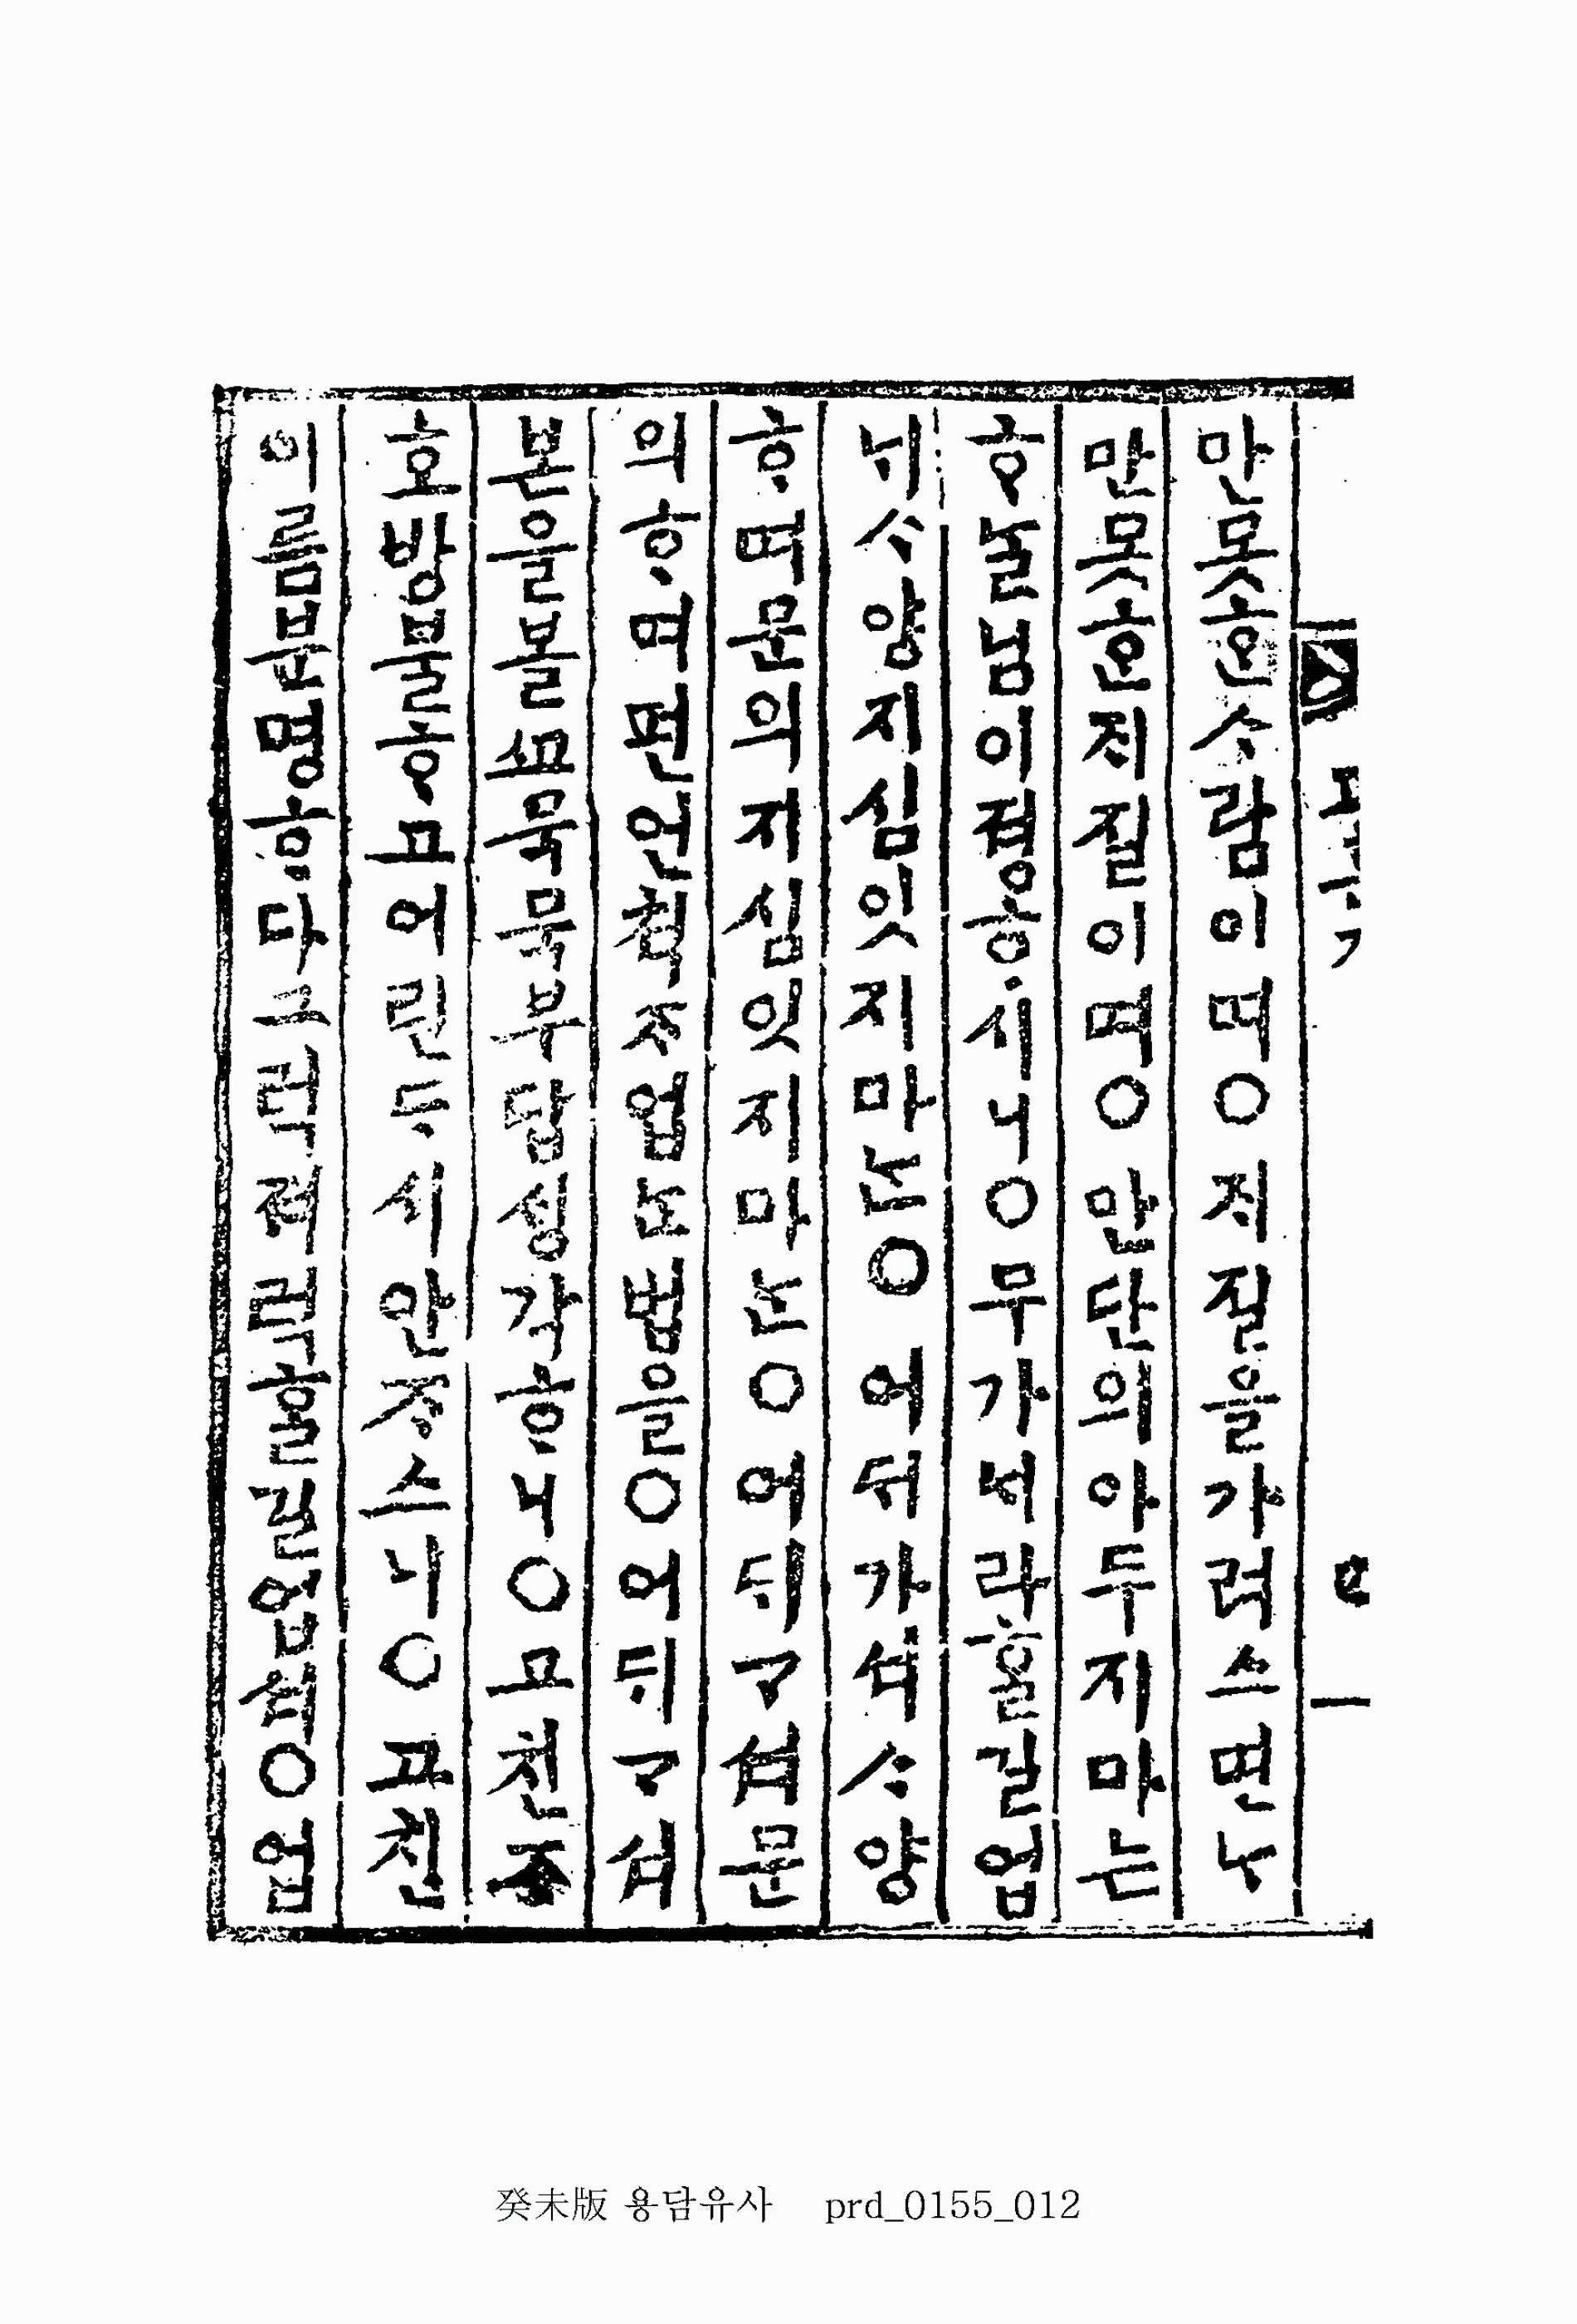 만못ᄒᆞᆫᄉᆞ람이며○ᄌᆡ질을가려스면ᄂᆞ
만못ᄒᆞᆫᄌᆡ질이며○만단의아두지마는
ᄒᆞᄂᆞᆯ님이졍ᄒᆞ시니○무가ᄂᆡ라ᄒᆞᆯ길업
ᄂᆡᄉᆞ양지심잇지마ᄂᆞᆫ○어ᄃᆡ가셔ᄉᆞ양
ᄒᆞ며문의지심잇지마ᄂᆞᆫ○어ᄃᆡᄀᆞ셔문
의ᄒᆞ며편언쳑ᄌᆞ업ᄂᆞᆫ법을○어ᄃᆡᄀᆞ셔
본을볼ᄭᅩ묵묵부답ᄉᆡᆼ각ᄒᆞ니○고친ᄌᆞ
호방불ᄒᆞ고어린ᄃᆞ시안ᄌᆞ스니○고친
이름분명ᄒᆞ다그럭져럭ᄒᆞᆯ길업셔○업
癸未版 용담유사 prd_0155_012